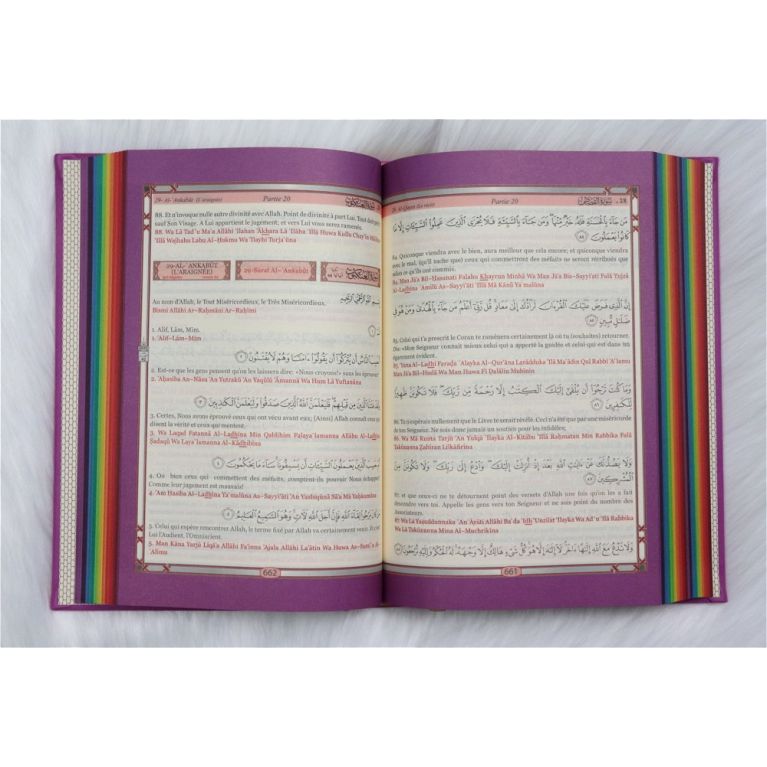 28- Al-Qasas
Partie 20
84. Quiconque viendra avec le bien, aura meilleur que cela encore; et quiconque viendra
avec le mal, (qu'il sache que) ceux qui commettront des méfaits ne seront rétribués que
selon ce qu'ils ont commis.
84. Man Jā'a Bil-Ĥasanati Falahu Khayrun Minhā Wa Man Jā'a Bis-Sayyi'ati Falā Yujzá
Al-Ladhīna `Amilū As-Sayyi'āti 'Illā Mā Kānū Ya`malūna
إِنَّ الَّذِي فَرَضَ عَلَيْكَ الْقُرْآنَ لَرَادُّكَ إِلَىٰ مَعَادٍ قُل رَّبِّي أَعْلَمُ مَن جَاءَ بِالْهُدَىٰ وَمَنْ هُوَ فِي
ضَلَالٍ مُّبِينٍ ٨٥
85. Celui qui t'a prescrit le Coran te ramènera certainement là où tu (souhaites) retourner.
Dis: «Mon Seigneur connaît mieux celui qui a apporté la guidée et celui qui est dans un
égarement évident.
85. 'Inna Al-Ladhī Farađa `Alayka Al-Qur'āna Larādduka 'Ilá Ma`ādin Qul Rabbī 'A`lamu
Man Jā'a Bil-Hudá Wa Man Huwa Fī Đalālin Mubīnin
وَمَا كُنتَ تَرْجُو أَن يُلْقَىٰ إِلَيْكَ الْكِتَابُ إِلَّا رَحْمَةً مِّن رَّبِّكَ فَلَا تَكُونَنَّ ظَهِيرًا
لِّلْكَافِرِينَ ٨٦
86. Tu n'espérais nullement que le Livre te serait révélé. Ceci n'a été que par une miséricorde
de ton Seigneur. Ne sois donc jamais un soutien pour les infidèles;
86. Wa Mā Kunta Tarjū 'An Yulqá 'Ilayka Al-Kitābu 'Illā Raĥmatan Min Rabbika Falā
Takūnanna Žahīran Lilkāfirīna
وَلَا يَصُدُّنَّكَ عَنْ آيَاتِ اللَّهِ بَعْدَ إِذْ أُنزِلَتْ إِلَيْكَ وَادْعُ إِلَىٰ رَبِّكَ وَلَا تَكُونَنَّ مِنَ
الْمُشْرِكِينَ ٨٧
87. et que ceux-ci ne te détournent point des versets d'Allah une fois qu'on les a fait
descendre vers toi. Appelle les gens vers ton Seigneur et ne sois point du nombre des
Associateurs.
87. Wa Lā Yaşuddunnaka `An 'Āyāti Allāhi Ba`da 'Idh 'Unzilat 'Ilayka Wa Ad`u 'Ilá Rabbika
Wa Lā Takūnanna Mina Al-Mushrikīna
وَلَا تَدْعُ مَعَ اللَّهِ إِلَٰهًا آخَرَ لَا إِلَٰهَ إِلَّا هُوَ كُلُّ شَيْءٍ هَالِكٌ إِلَّا وَجْهَهُ لَهُ الْحُكْمُ وَإِلَيْهِ تُرْجَعُونَ ٨٨
661
29- Al-'Ankabût (L'araignée)
Partie 20
88. Et n'invoque nulle autre divinité avec Allah. Point de divinité à part Lui. Tout doit périr,
sauf Son Visage. A Lui appartient le jugement; et vers Lui vous serez ramenés.
88. Wa Lā Tad`u Ma`a Allāhi 'Ilahan 'Ākhara Lā 'Ilāha 'Illā Huwa Kullu Chay'in Hālikun
'Illā Wajhahu Lahu Al-Ĥukmu Wa 'Ilayhi Turja`ūna
29-AL-'ANKABÛT
(L'ARAIGNÉE)
29-Sūrat Al-`Ankabūt
Au nom d'Allah, le Tout Miséricordieux, le Très Miséricordieux.
Bismi Allāhi Ar-Raĥmāni Ar-Raĥīmi
بِسْمِ اللَّهِ الرَّحْمَٰنِ الرَّحِيمِ
1. Alif, Lâm, Mîm.
1. 'Alif-Lām-Mīm
النَّاسُ أَن يُتْرَكُوا أَن يَقُولُوا آمَنَّا وَهُمْ لَا يُفْتَنُونَ ٢
2. Est-ce que les gens pensent qu'on les laissera dire: «Nous croyons!» sans les éprouver?
2. 'Aĥasiba An-Nāsu 'An Yutrakū 'An Yaqūlū 'Āmannā Wa Hum Lā Yuftanūna
الَّذِينَ مِن قَبْلِهِمْ فَلَيَعْلَمَنَّ اللَّهُ الَّذِينَ صَدَقُوا وَلَيَعْلَمَنَّ الْكَاذِبِينَ ٣
3. Certes, Nous avons éprouvé ceux qui ont vécu avant eux; [Ainsi] Allah connaît ceux qui
disent la vérité et ceux qui mentent.
3. Wa Laqad Fatannā Al-Ladhīna Min Qablihim Falaya`lamanna Allāhu Al-Ladhīna
Şadaqū Wa Laya`lamanna Al-Kādhibīna
حَسِبَ الَّذِينَ يَعْمَلُونَ السَّيِّئَاتِ أَن يَسْبِقُونَا سَاءَ مَا يَحْكُمُونَ ٤
4. Ou bien ceux qui commettent des méfaits, comptent-ils pouvoir Nous échapper?
Comme leur jugement est mauvais!
4. 'Am Ĥasiba Al-Ladhīna Ya`malūna As-Sayyi'āti 'An Yasbiqūnā Sā'a Mā Yaĥkumūna
كَانَ يَرْجُو لِقَاءَ اللَّهِ فَإِنَّ أَجَلَ اللَّهِ لَآتٍ وَهُوَ السَّمِيعُ الْعَلِيمُ ٥
5. Celui qui espère rencontrer Allah, le terme fixé par Allah va certainement venir. Il est
l'Audient, l'Omniscient.
5. Man Kāna Yarjū Liqā'a Allāhi Fa'inna 'Ajala Allāhi La'ātin Wa Huwa As-Samī`u Al-
`Alīmu
662